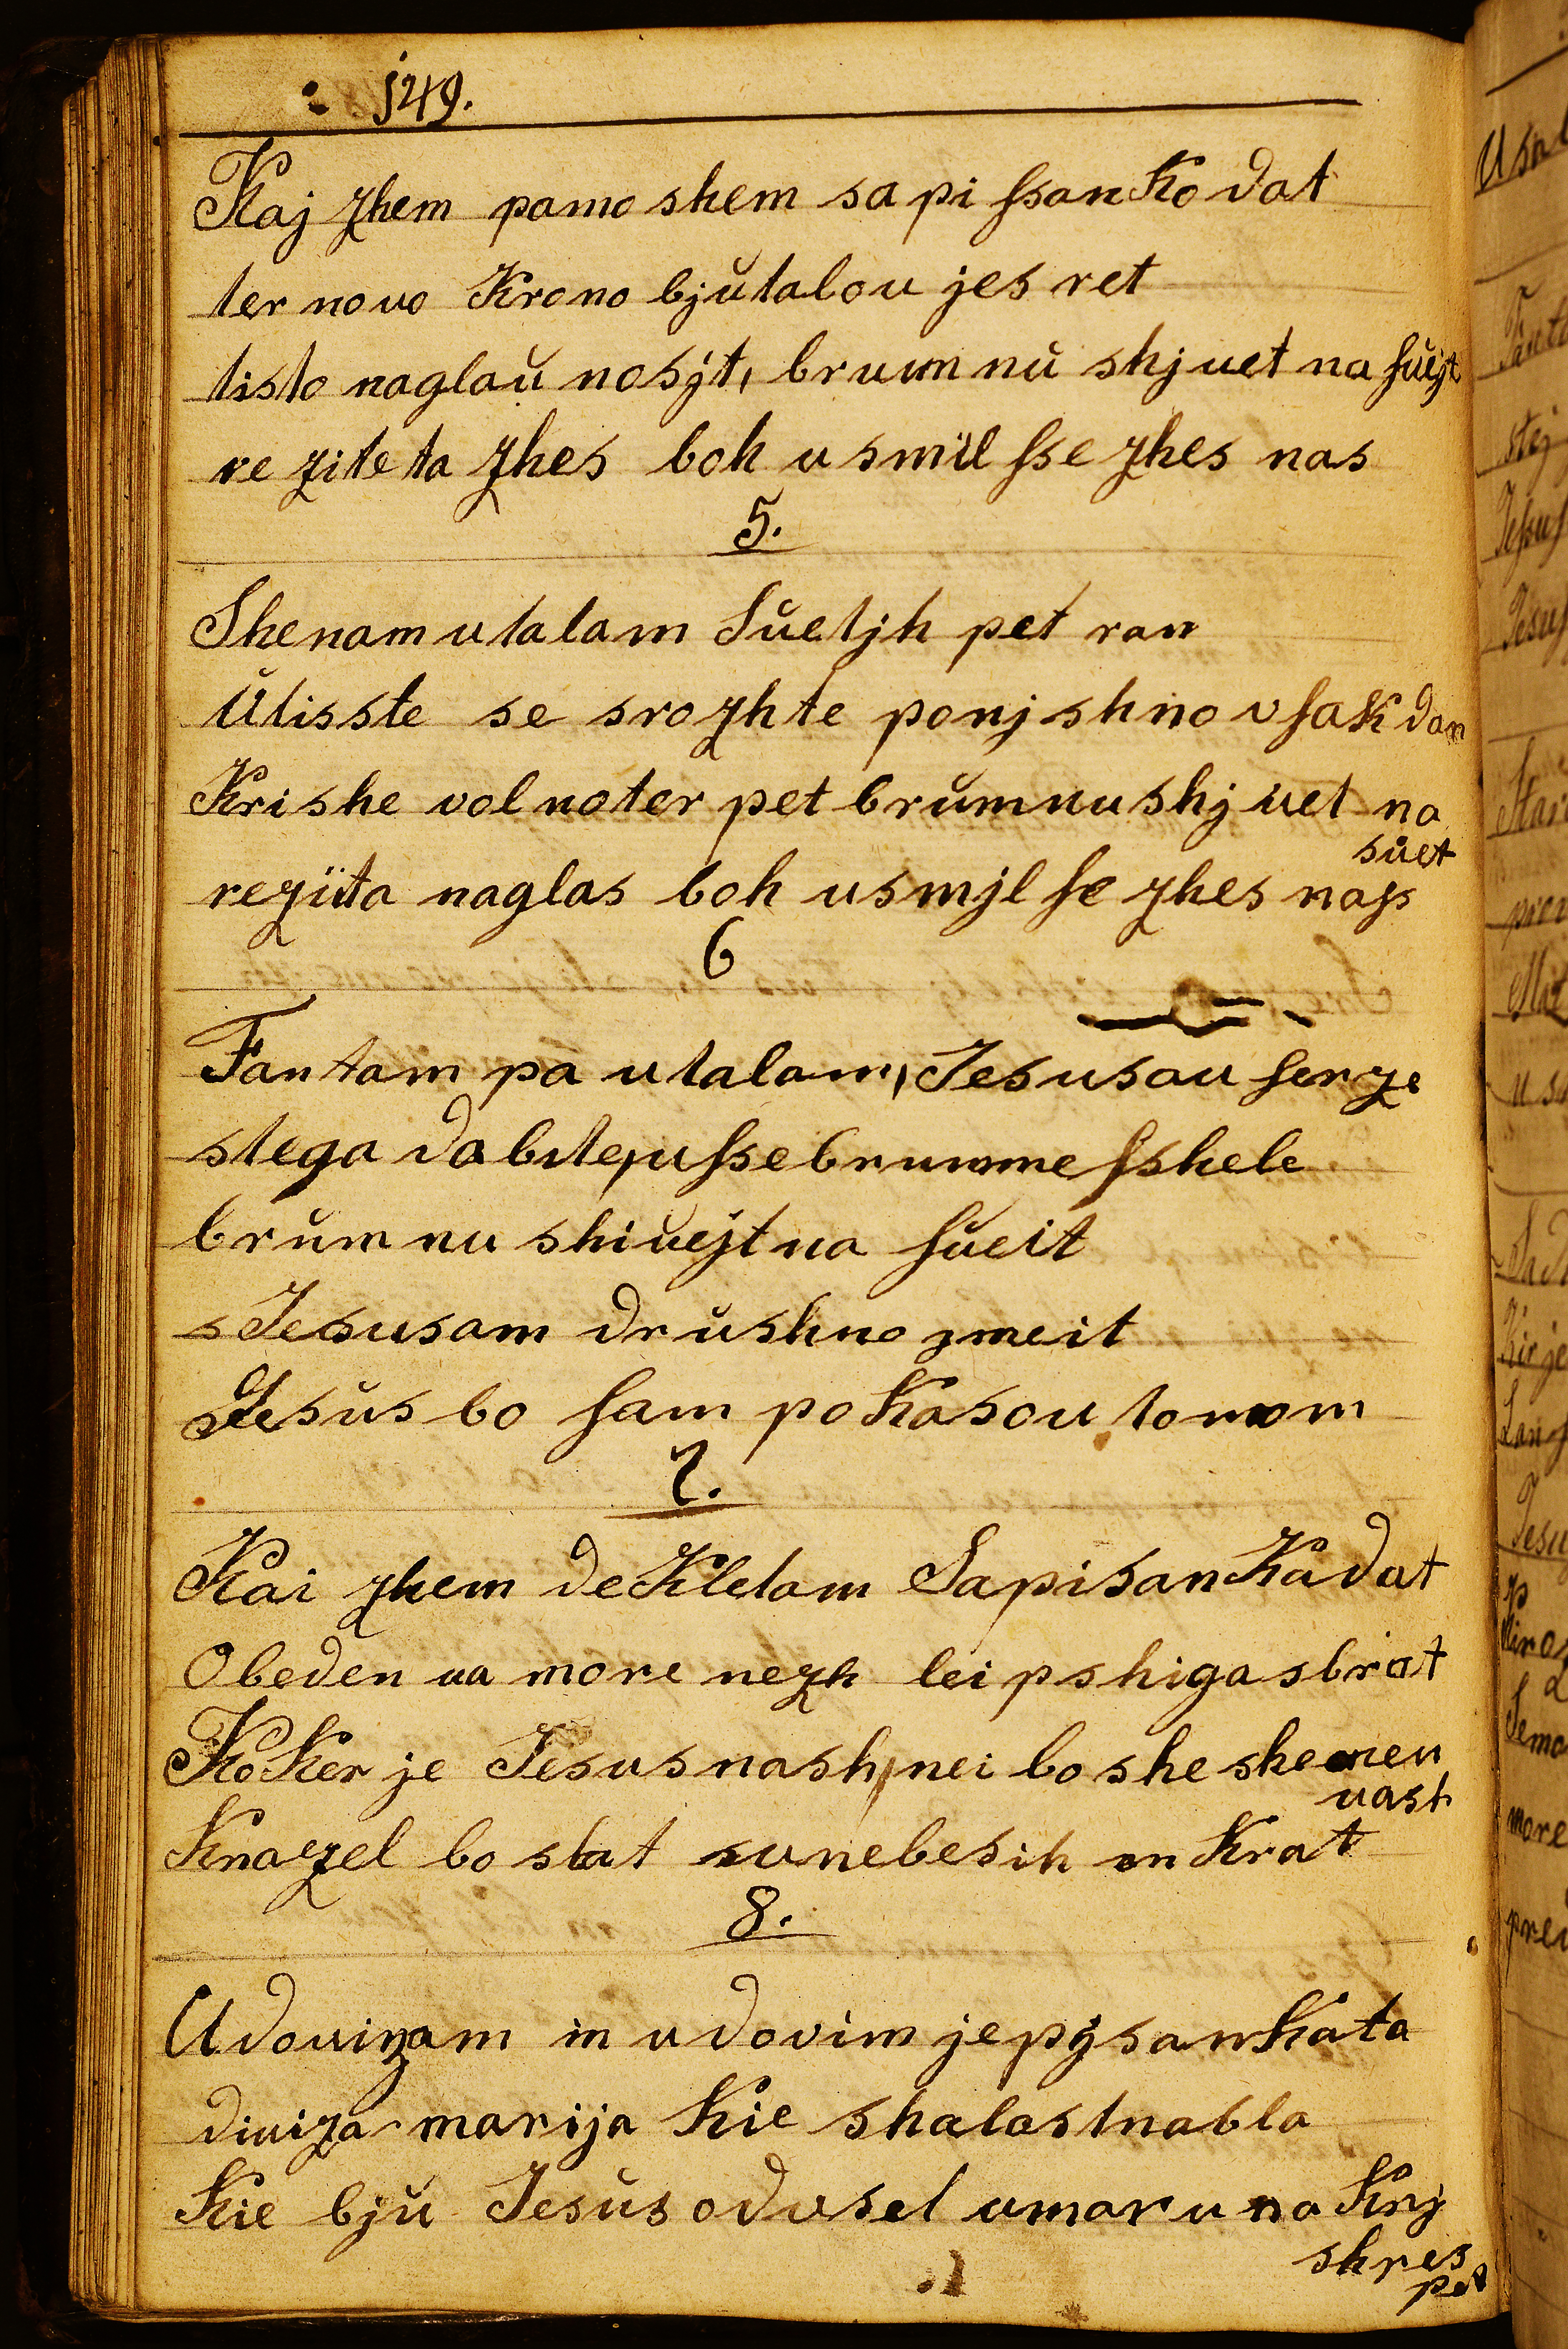 149.
Kaj zhem pamo shem sa pi ſsan Ko dat
ter novo Krono bjŭtalou jes ret
tisto naglaŭ nosjt, brumnŭ shjuet na ſuejt
re zite ta zhes boh usmil ſse zhes nas
5.
Shenam utalam Sŭetjh pet ran
Ŭlisste se srozhte ponjshno vſak dan
Krishe vol noter pet brŭmnu shjuet na
sŭet
reziita naglas boh usmjl ſe zhes naſs
6
Fantam pa utalam, Jesusau ſerze
stega dobite, uſse brumne ſshele
brŭmnu shiŭejt na ſŭeit
s Jesusam drŭshno zmeit
Jesŭs bo ſam poKasou tomom
7.
Kai zhem deKletam SapisanKa dat
Obeden na more nezh leipshiga sbrat
KoKer je Jesus nash, nei bo she shenen
vash
Knazel bo slat su nebesih en Krat
8.
Udovizam in udovim je pijsanKata
diviza marija Kie shalostna bla
Kie bjŭ Jesŭs odvsel umar u na Krj
shres
pet